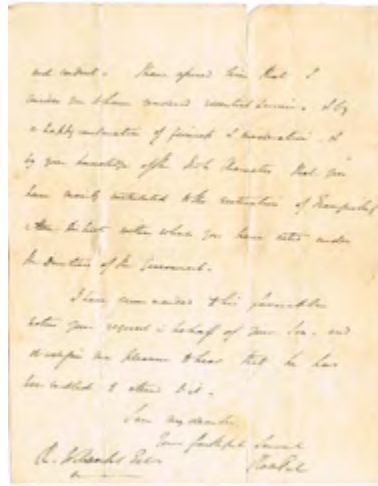 and conduct. I have assured him that I
consider you to have rendered essential Service. & by
a happy combination of firmness & moderation. &
by your knowledge of the Irish Character that you
have mainly contributed to the restoration of Tranquillity
in the District within which you have acted under
the Direction of the Government.
I have recommended to his favorable
notice your request in behalf of your Son. and
it will give me pleasure to hear that he has
been enabled to attend to it.
I am my dear Sir
Your faithful Servant
Robt Peel
R. Willcocks Esqr